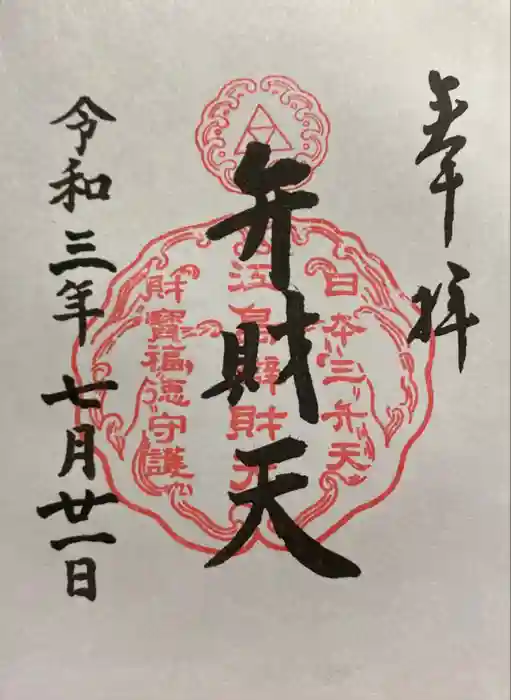 奉拝
日本三弁天
江島辨財天
財寶福徳守護
弁財天
令和三年七月廿一日